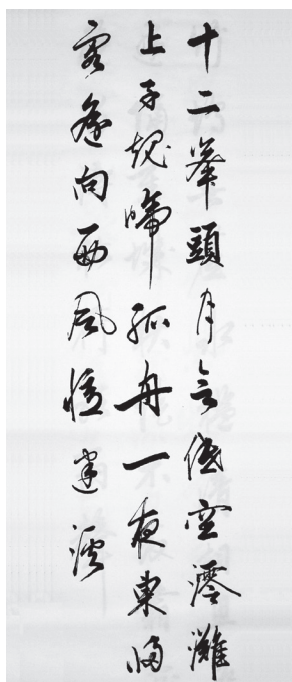 十二峯頭月欲低空澪灘
上子規啼孤舟一夜東歸
客向西風憶建溪